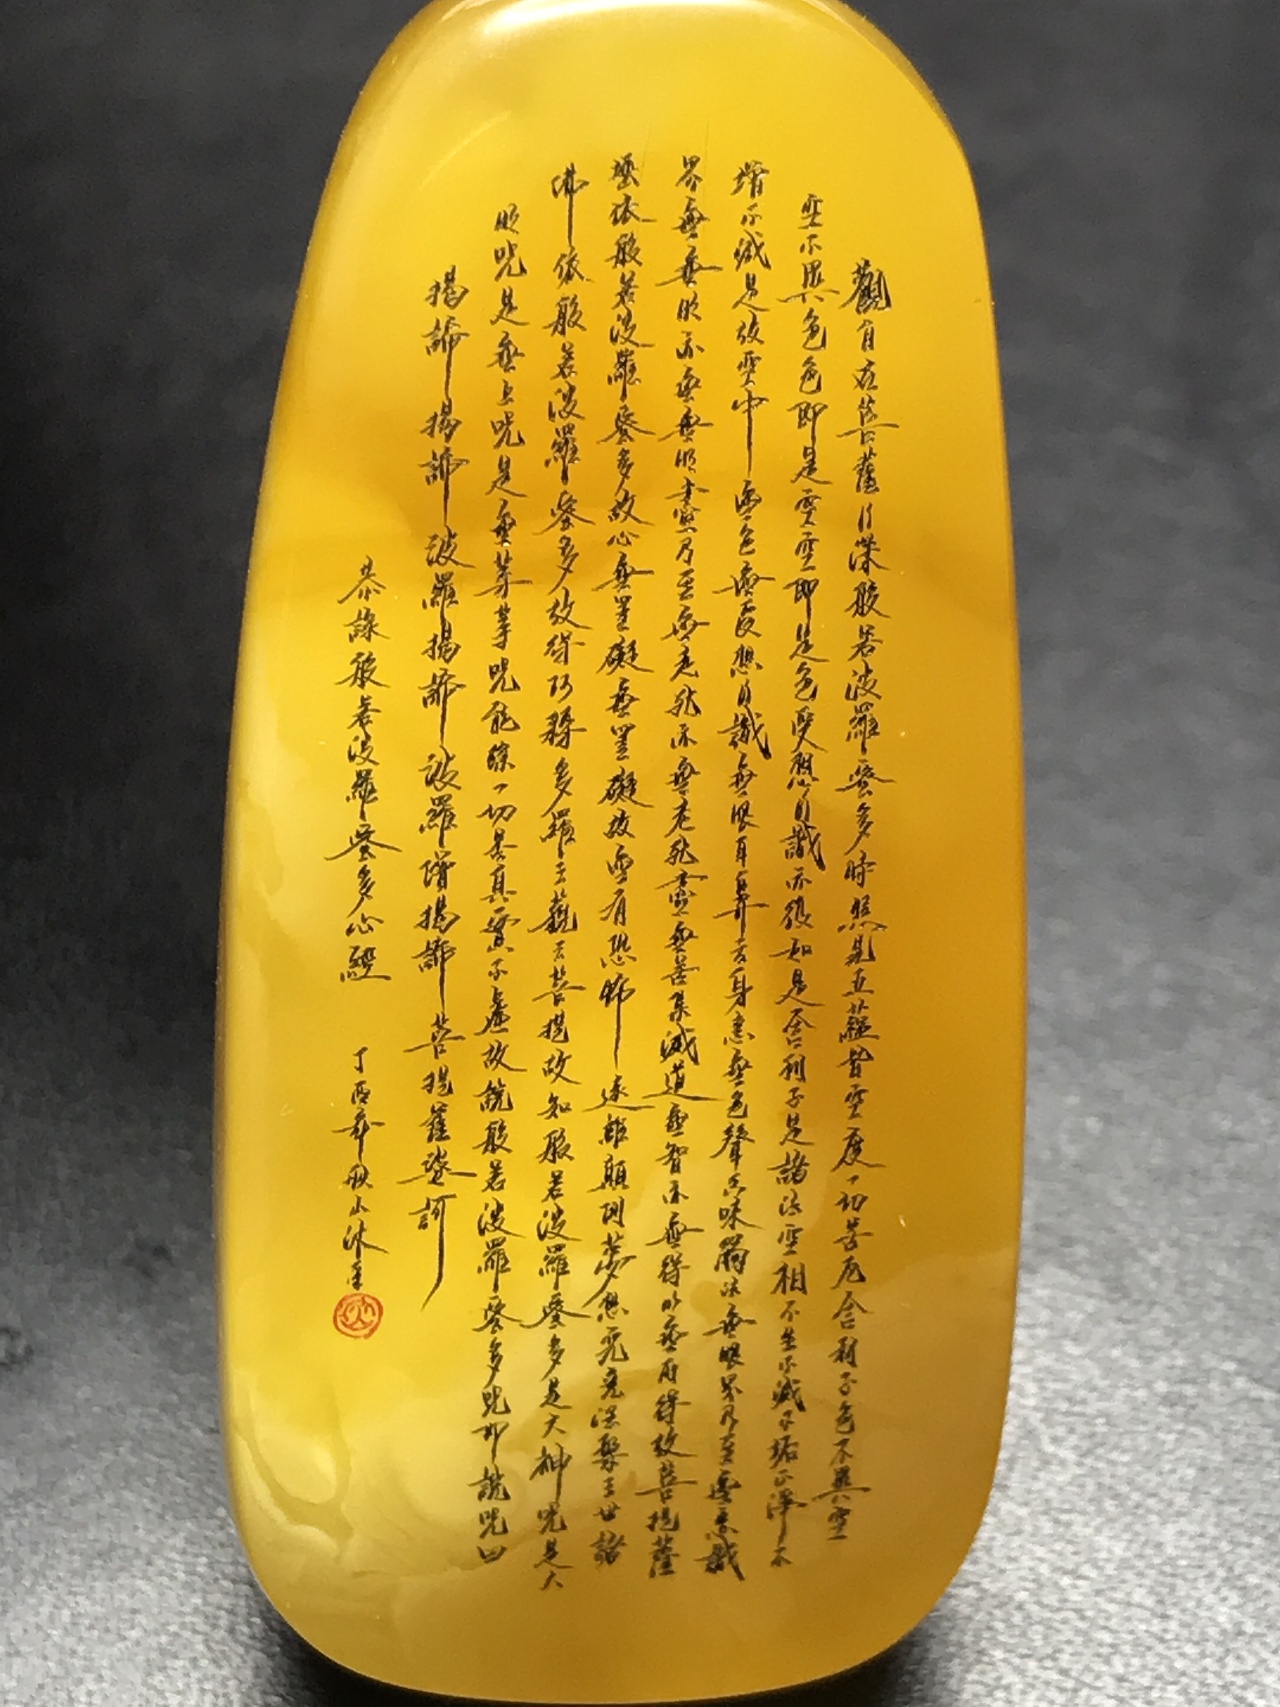 觀自在菩薩行深般若波羅蜜多時照見五蘊皆空度一切苦厄舍利子色不異空
空不異色色即是空空即是色受想行識亦復如是舍利子是諸法空相不生不滅不垢不淨不
增不滅是故空中無色無受想行識無眼耳鼻舌身意無色聲香味觸法無眼界乃至無意識
界無無明亦無無明盡乃至無老死亦無老死盡無苦集滅道無智亦無得以無所得故菩提薩
埵依般若波羅蜜多故心無罣礙無罣礙故無有恐怖遠離顛倒夢想究竟涅槃三世諸
佛依般若波羅蜜多故得阿耨多羅三藐三菩提故知般若波羅蜜多是大神咒是大
明咒是無上咒是無等等咒能除一切苦真實不虛故說般若波羅蜜多咒即說咒曰
揭諦揭諦波羅揭諦波羅增揭諦菩提薩婆訶
恭錄般若波羅蜜多心經 丁酉年秋山沐手